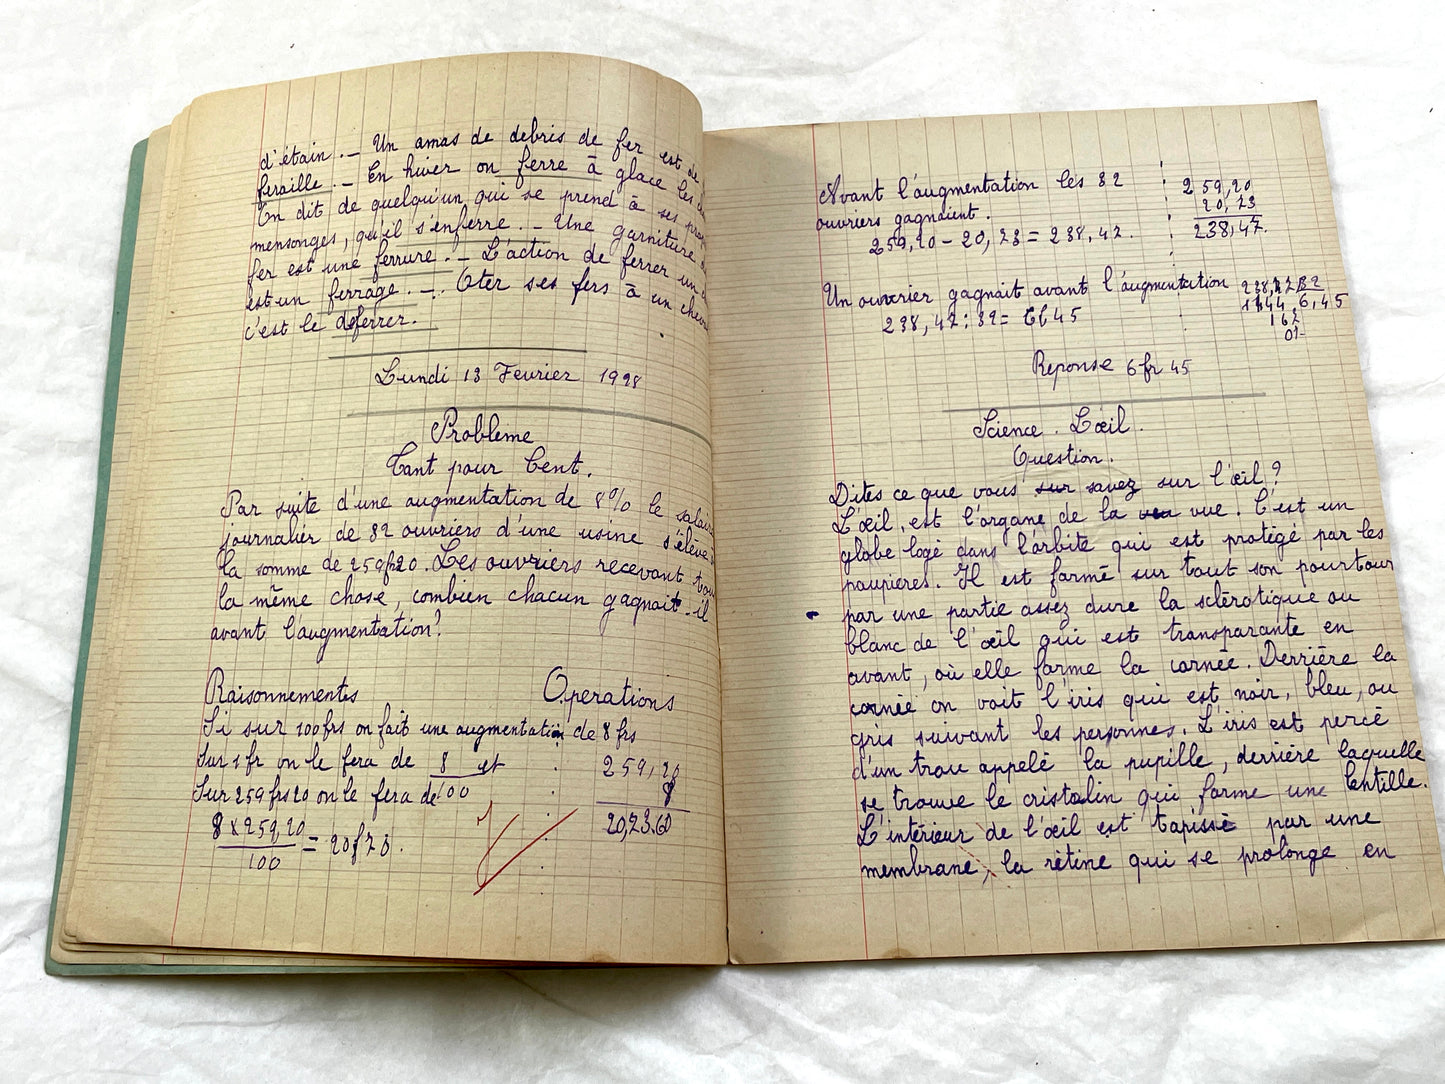 d'étain. – Un amas de debris de fer est de
feraille. – En hiver on ferre à glace les
On dit de quelqu'un qui se prend à ses
mensonges, qu'il s'enferre. – Une garniture
fer est une ferrure. – L'action de ferrer un
est un ferrage. – Oter ses fers à un cheval
c'est le deferrer.
Lundi 13 Fevrier 1928
Probleme
Tant pour Cent.
Par suite d'une augmentation de 8% le salaire
journalier de 32 ouvriers d'une usine s'élève
la somme de 259f20. Les ouvriers recevant tous
la même chose, combien chacun gagnait-il
avant l'augmentation?
Raisonnements Operations
Si sur 100frs on fait une augmentation de 8 frs
Sur 1 fr on le fera de 8 et
100
Sur 259frs20 on le fera de
8 x 259,20 = 20f73.
100
259,20
8
20,73.60
Avant l'augmentation les 32
ouvriers gagnaient.
259,20 – 20,73 = 238,47.
259,20
20,73
238,47.
Un ouvrier gagnait avant l'augmentation
238,47 : 32 =
6,45
Reponse 6 fr 45
Science. L'œil.
Question.
Dites ce que vous sur savez sur l'œil?
L'œil, est l'organe de la vue. C'est un
globe logé dans l'orbite qui est protégé par les
paupieres. Il est formé sur tout son pourtour
par une partie assez dure la sclérotique ou
blanc de l'œil qui est transparante en
avant, où elle forme la cornée. Derrière la
cornée on voit l'iris qui est noir, bleu, ou
gris suivant les personnes. L'iris est percé
d'un trou appelé la pupille, derrière laquelle
se trouve le cristalin qui forme une lentille.
L'intérieur de l'œil est tapissé par une
membrane, la rétine qui se prolonge en